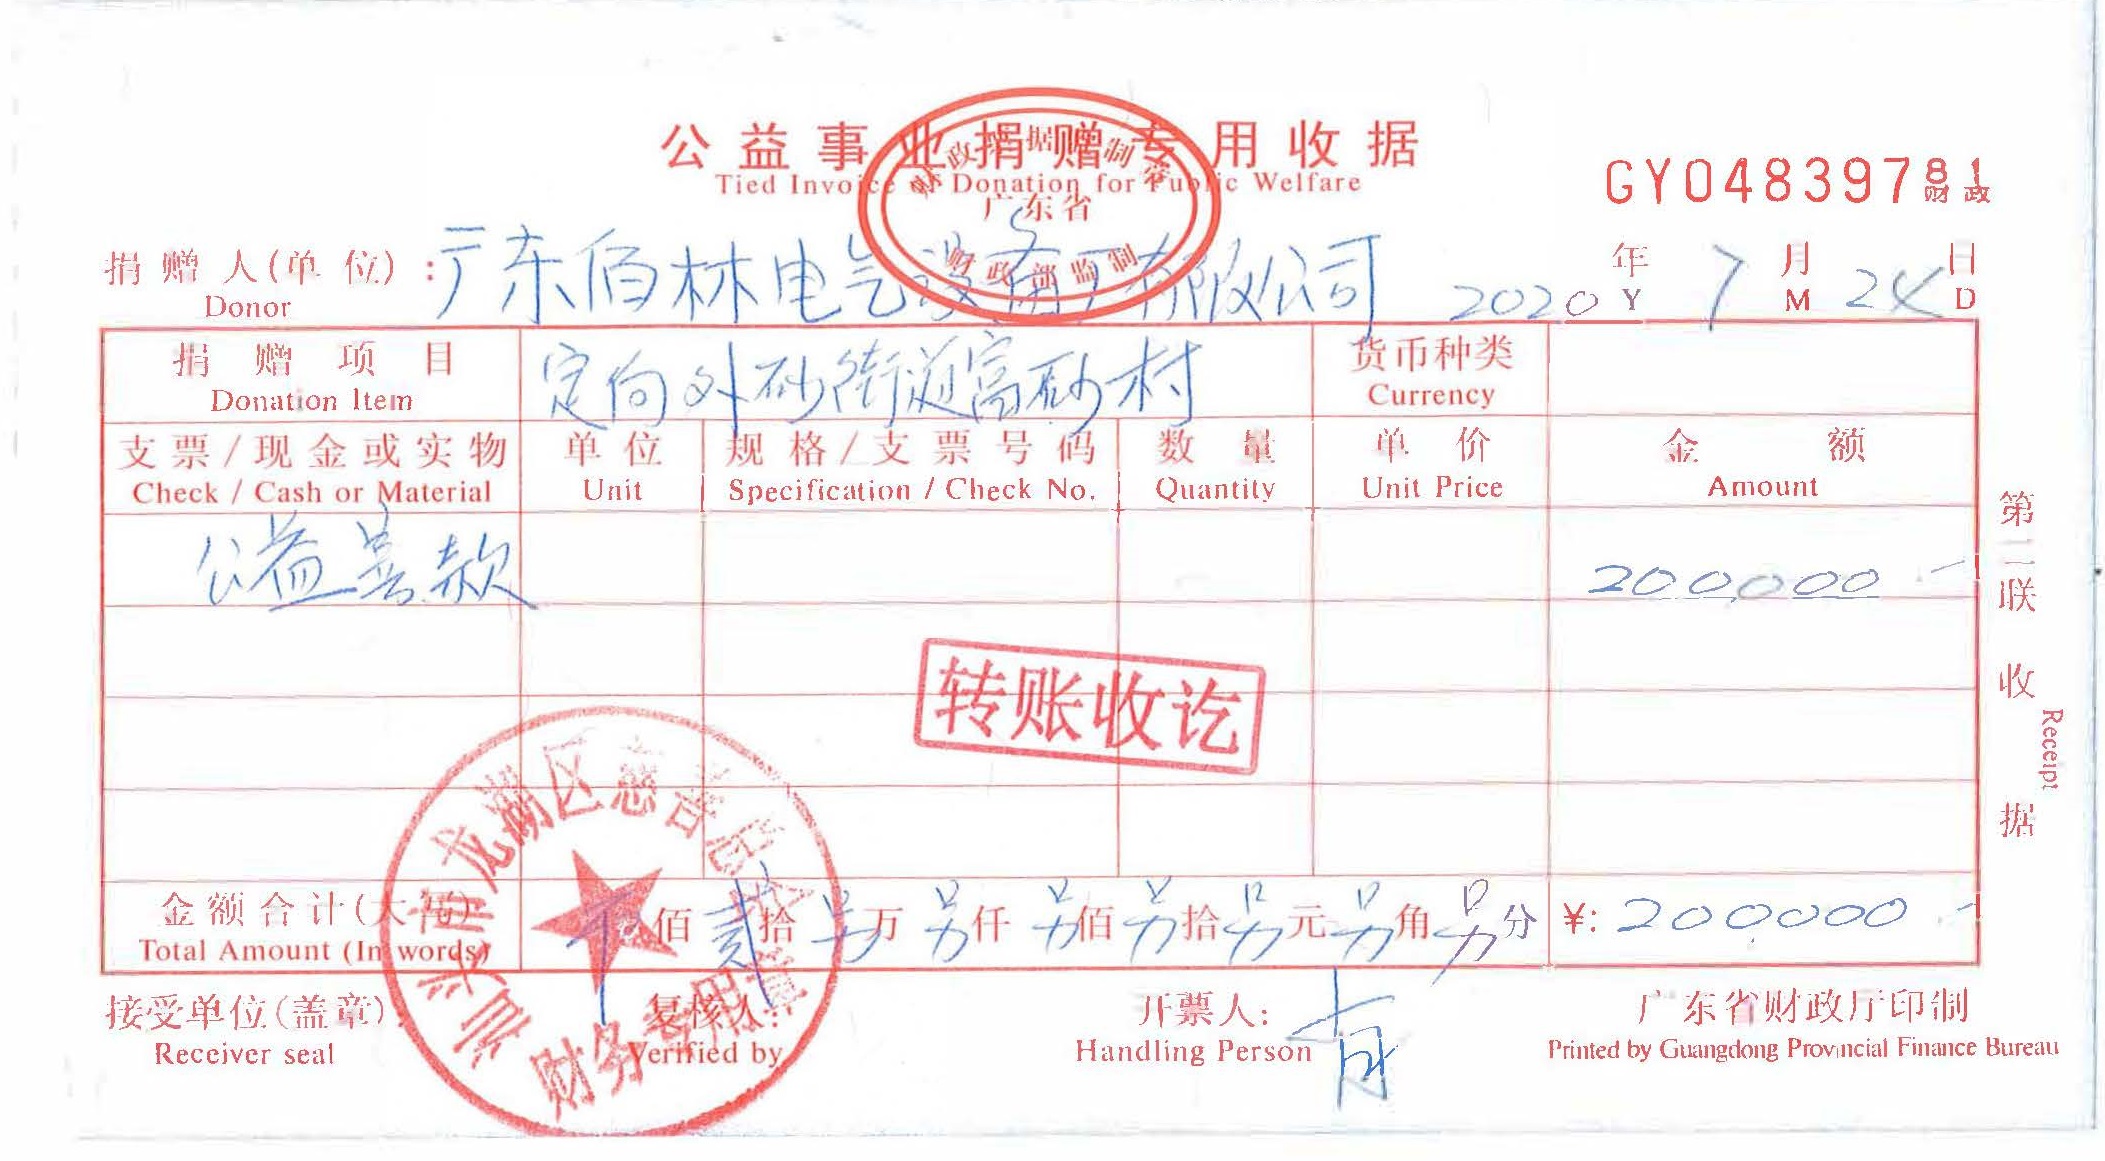 公益事业捐赠专用收据
Tied Invoice Donation for Public Welfare
财政票据监制章
广东省
财政部监制
GY04839781
财政
捐赠人(单位): 广东佰林电气设备有限公司 2020 年 7 月 24 日
Donor Y M D
捐赠项目 定向外砂街道富砂村 货币种类
Donation Item Currency
支票/现金或实物 单位 规格/支票号码 数量 单价 金额
Check / Cash or Material Unit Specification / Check No. Quantity Unit Price Amount
公益善款 200,000.-
转账收讫
金额合计(大写) 佰 贰 拾 另 万 另 仟 另 佰 另 拾 另 元 另 角 另 分 ¥: 200000.-
Total Amount (In words)
汕头市龙湖区慈善总会
财务专用章
接受单位(盖章): 复核人: 开票人: 广东省财政厅印制
Receiver seal Verified by Handling Person Printed by Guangdong Provincial Finance Bureau
第二联 收据
Receipt